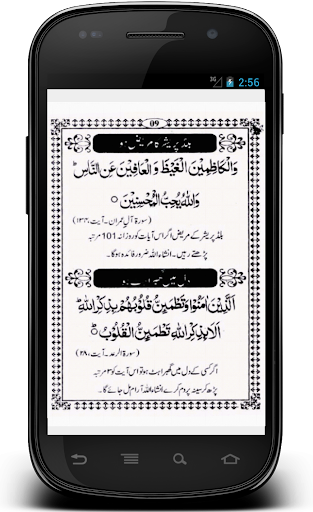 3G 2:56
09
بلڈ پریشر کا مریض ہو
وَالْكَاظِمِيْنَ الْغَيْظَ وَ الْعَافِيْنَ عَنِ النَّاسِ ؕ
وَاللّٰهُ يُحِبُّ الْمُحْسِنِيْنَ ۞
(سورۃ آل عمران۔ آیت، ۱۳۴)
بلڈ پریشر کے مریض اگر اس آیات کو روزانہ 101 مرتبہ
پڑھتے رہیں۔ انشاء اللہ ضرور فائدہ ہوگا۔
دل میں گھبراہٹ ہو
اَلَّذِيْنَ اٰمَنُوْا وَتَطْمَئِنُّ قُلُوْبُهُمْ بِذِكْرِ اللّٰهِ ؕ
اَلَا بِذِكْرِ اللّٰهِ تَطْمَئِنُّ الْقُلُوْبُ ۞
(سورۃ الرعد۔ آیت، ۲۸)
اگر کسی کے دل میں گھبراہٹ ہو تو اس آیت کو ۳ مرتبہ
پڑھ کر سینہ پر دم کرے انشاء اللہ آرام مل جائے گا۔